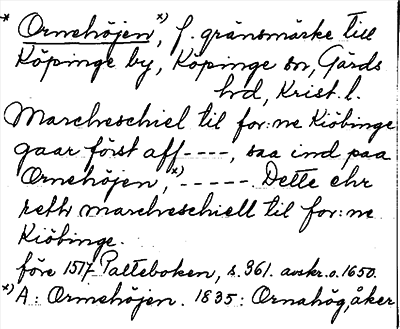 * Ornehöjen *), f. gränsmärke till
Köpinge by, Köpinge sn, Gärds
hrd, Krist. l.
Marcheschiel til for:ne Kiöbinge
gaar först aff ----, saa ind paa
Ornehöjen, *) ----- Dette ehr
reth marcheschiell til for:ne
Kiöbinge.
före 1517 Palteboken, s. 361. avskr. o. 1650.
*) A: Ormehöjen. 1835: Ornahög, åker